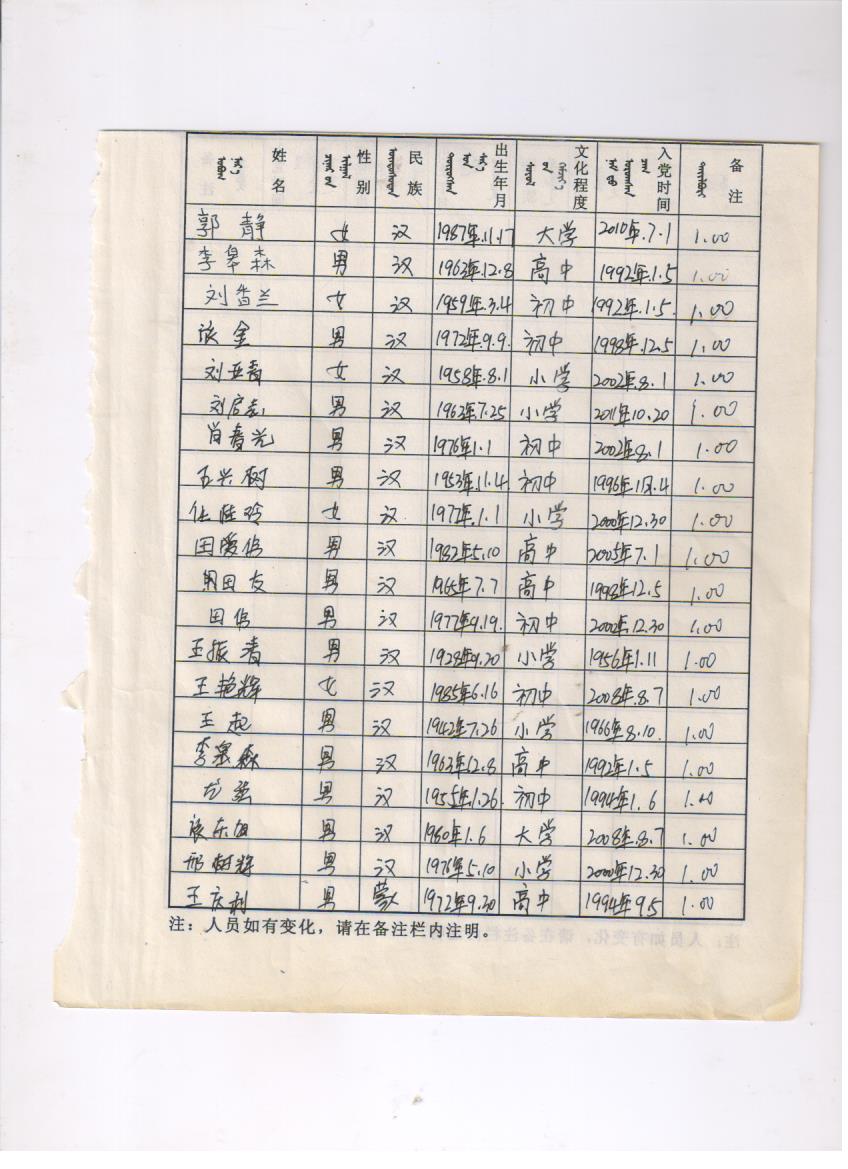 姓名 性别 民族 出生年月 文化程度 入党时间 备注
郭静 女 汉 1987年.11.17 大学 2010年.7.1 1.00
李皋森 男 汉 1963年.12.8 高中 1992年.1.5 1.00
刘香兰 女 汉 1959年.3.4 初中 1992年.1.5. 1.00
张金 男 汉 1972年.9.9. 初中 1998年.12.5 1.00
刘亚青 女 汉 1958年.8.1 小学 2002年.8.1 1.00
刘启志 男 汉 1962年7.25 小学 2011年10.20 1.00
肖春光 男 汉 1976年1.1 初中 2002年.8.1 1.00
王兴树 男 汉 1953年.11.4 初中 1.00
任胜玲 女 汉 1972年.1.1 小学 2000年12.30 1.00
田爱伟 男 汉 1982年5.10 高中 2005年7.1 1.00
田友 男 汉 1965年7.7 高中 1998年12.5 1.00
田伟 男 汉 1977年9.19. 初中 2002年.12.30 1.00
王振青 男 汉 1928年9.20 小学 1956年1.11 1.00
王艳辉 女 汉 1985年6.16 初中 2008年.8.7 1.00
王起 男 汉 1942年7.26 小学 1966年8.10. 1.00
李泉森 男 汉 1963年12.8 高中 1992年1.5 1.00
男 汉 1955年.1.26. 初中 1994年1.6 1.00
张东旭 男 汉 1980年1.6 大学 2008年.8.7 1.00
邢树辉 男 汉 1976年5.10 小学 2000年12.30 1.00
王庆利 男 蒙 1972年9.30 高中 1994年95 1.00
注：人员如有变化，请在备注栏内注明。